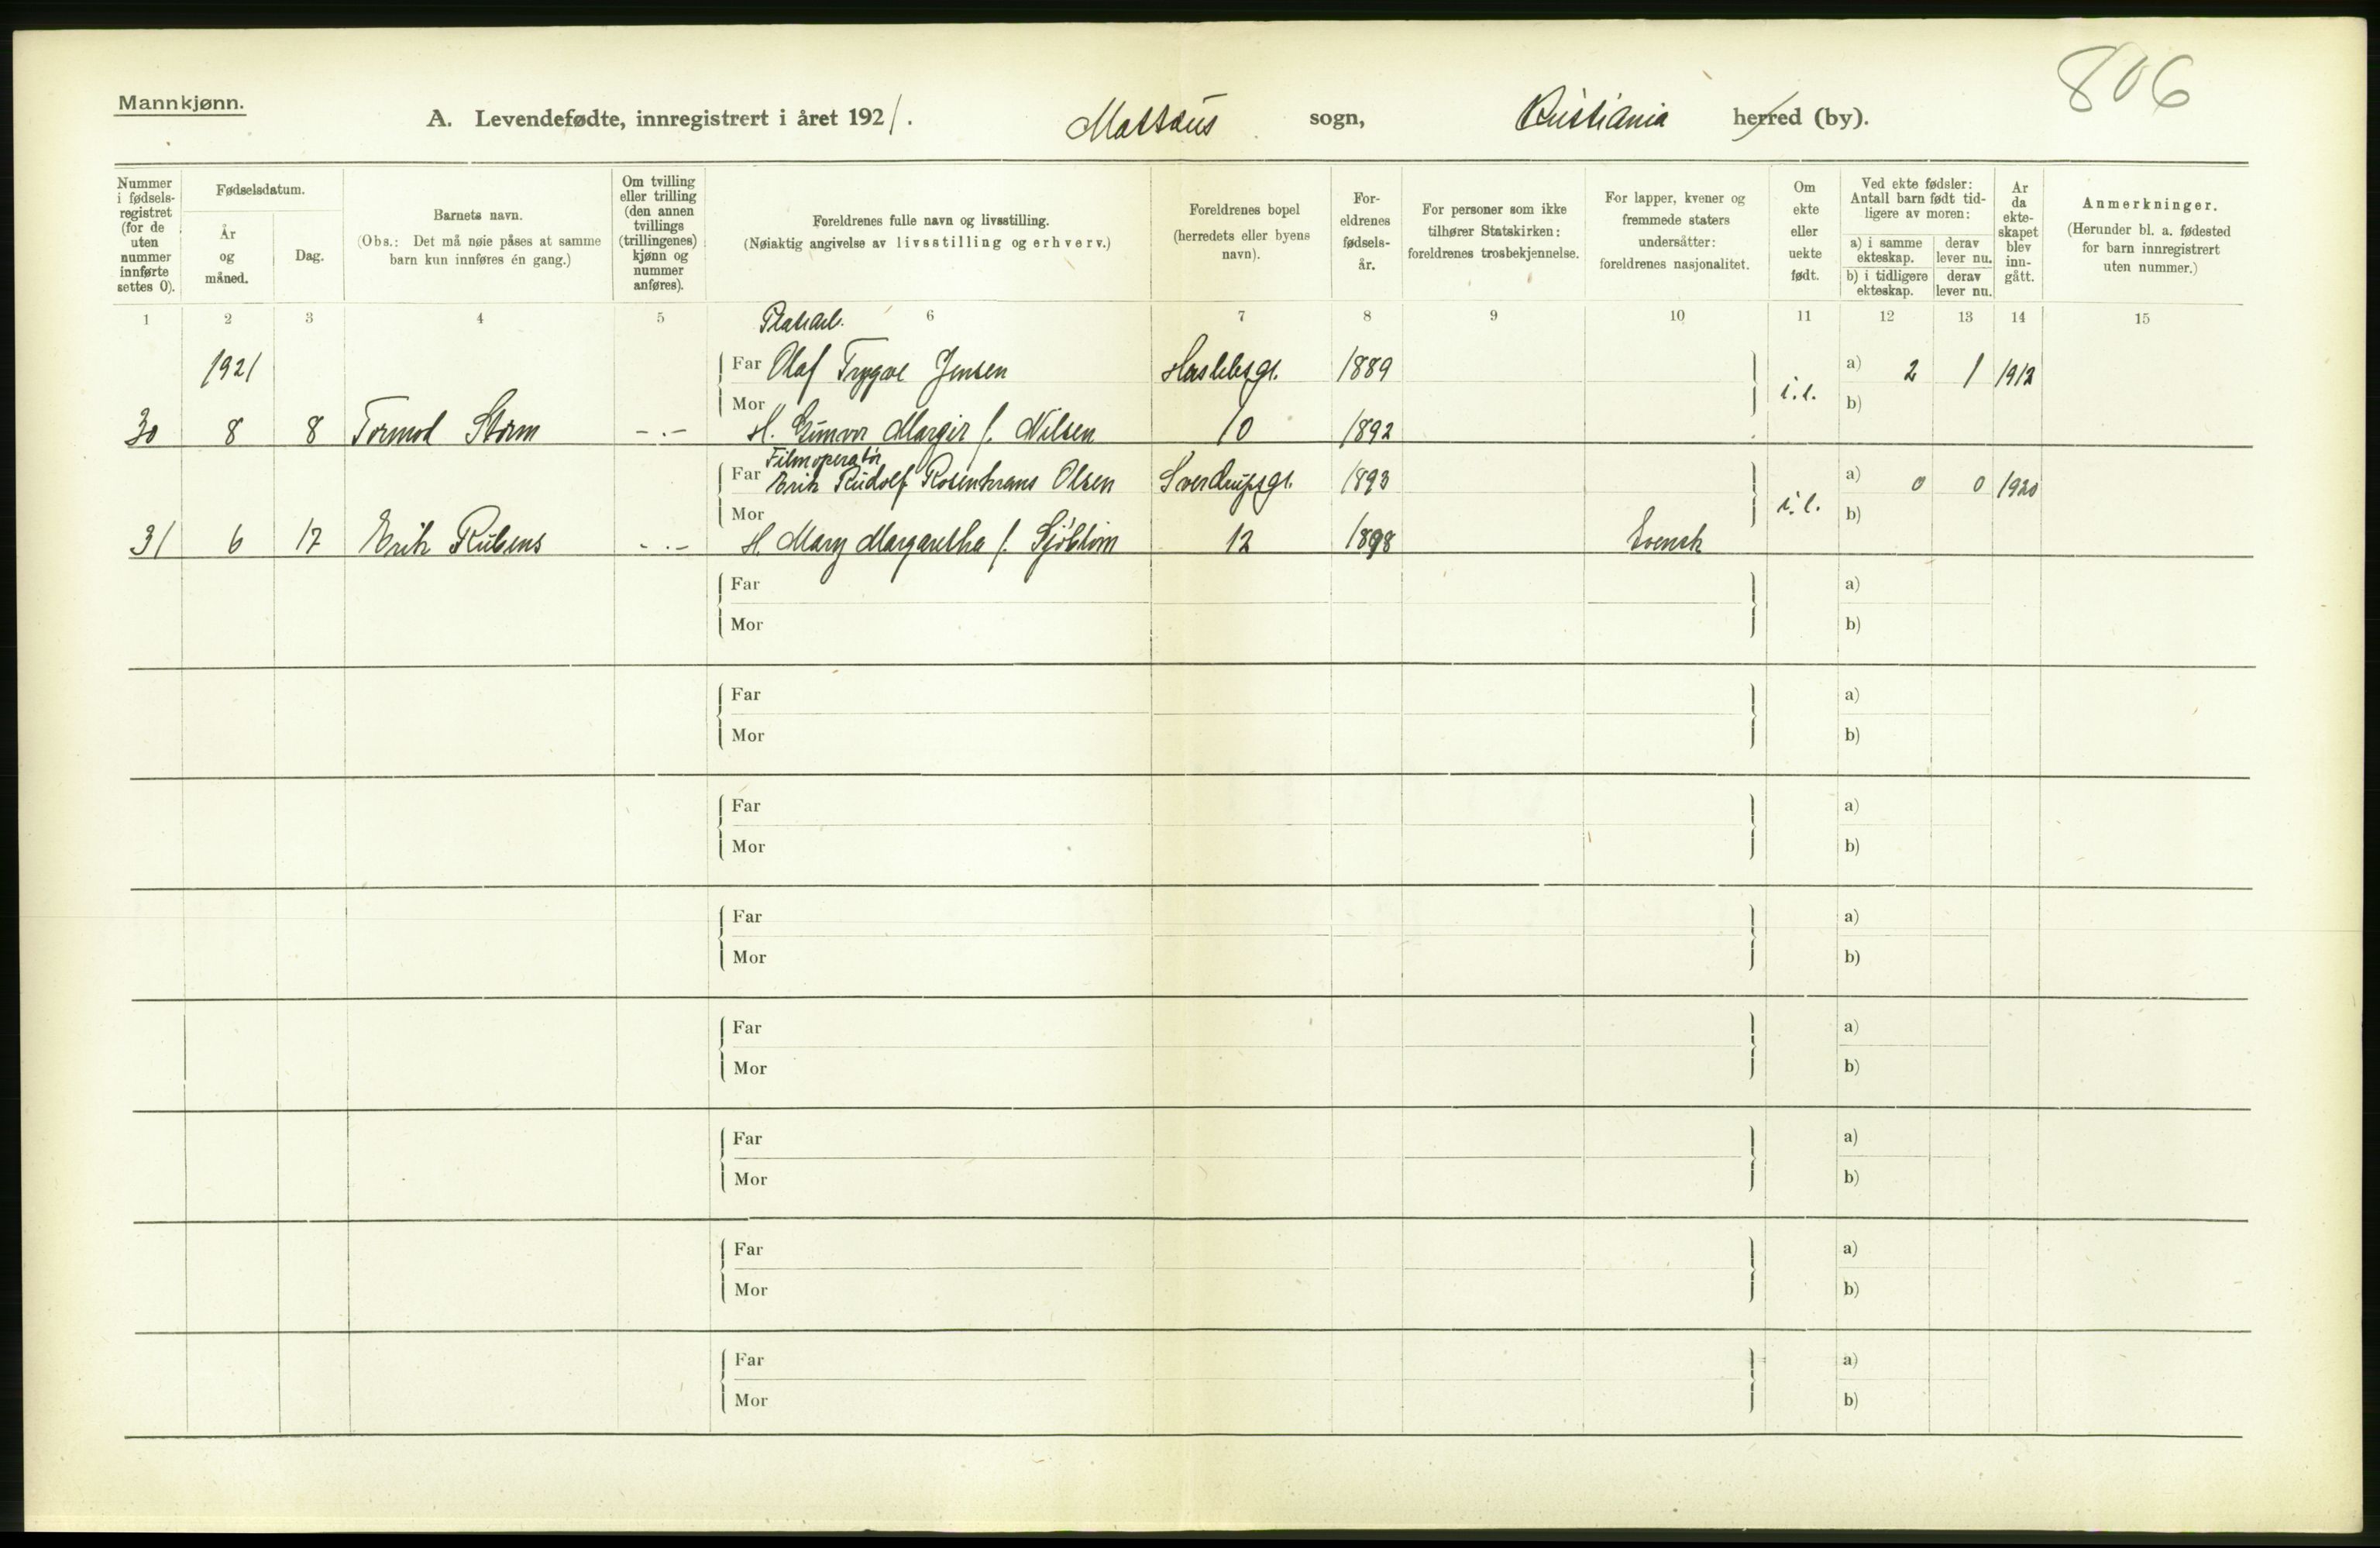 806
Mannkjønn.
A. Levendefødte, innregistrert i året 1921. Mattæus sogn, Kristiania herred (by).
Nummer i fødsels-registret (for de uten nummer innførte settes 0).
Fødselsdatum.
År og måned.
Dag.
Barnets navn.
(Obs.: Det må nøie påses at samme barn kun innføres én gang.)
Om tvilling eller trilling (den annen tvillings (trillingenes) kjønn og nummer anføres).
Foreldrenes fulle navn og livsstilling.
(Nøiaktig angivelse av livsstilling og erhverv.)
Foreldrenes bopel (herredets eller byens navn).
For-eldrenes fødsels-år.
For personer som ikke tilhører Statskirken: foreldrenes trosbekjennelse.
For lapper, kvener og fremmede staters undersåtter: foreldrenes nasjonalitet.
Om ekte eller uekte født.
Ved ekte fødsler: Antall barn født tid-ligere av moren:
a) i samme ekteskap. derav lever nu.
b) i tidligere ekteskap. derav lever nu.
År da ekte-skapet blev inn-gått.
Anmerkninger.
(Herunder bl. a. fødested for barn innregistrert uten nummer.)
1 2 3 4 5 6 7 8 9 10 11 12 13 14 15
1921 Far Olaf Trygve Jensen 1889 i.e. a) 2 1 1912
Mor b)
30 8 8 Tormod Storm -.- H. Gunvor Margit f. Nilsen 10 1892
Filmoperatør
Far Erik Rudolf Rosenkrans Olsen Sverdrupsgt. 1893 i.e. a) 0 0 1920
Mor b)
31 6 17 Erik Rubens -.- H. Mary Margaretha f. Sjöblom 12 1898 Svensk
Far a)
Mor b)
Far a)
Mor b)
Far a)
Mor b)
Far a)
Mor b)
Far a)
Mor b)
Far a)
Mor b)
Far a)
Mor b)
Far a)
Mor b)